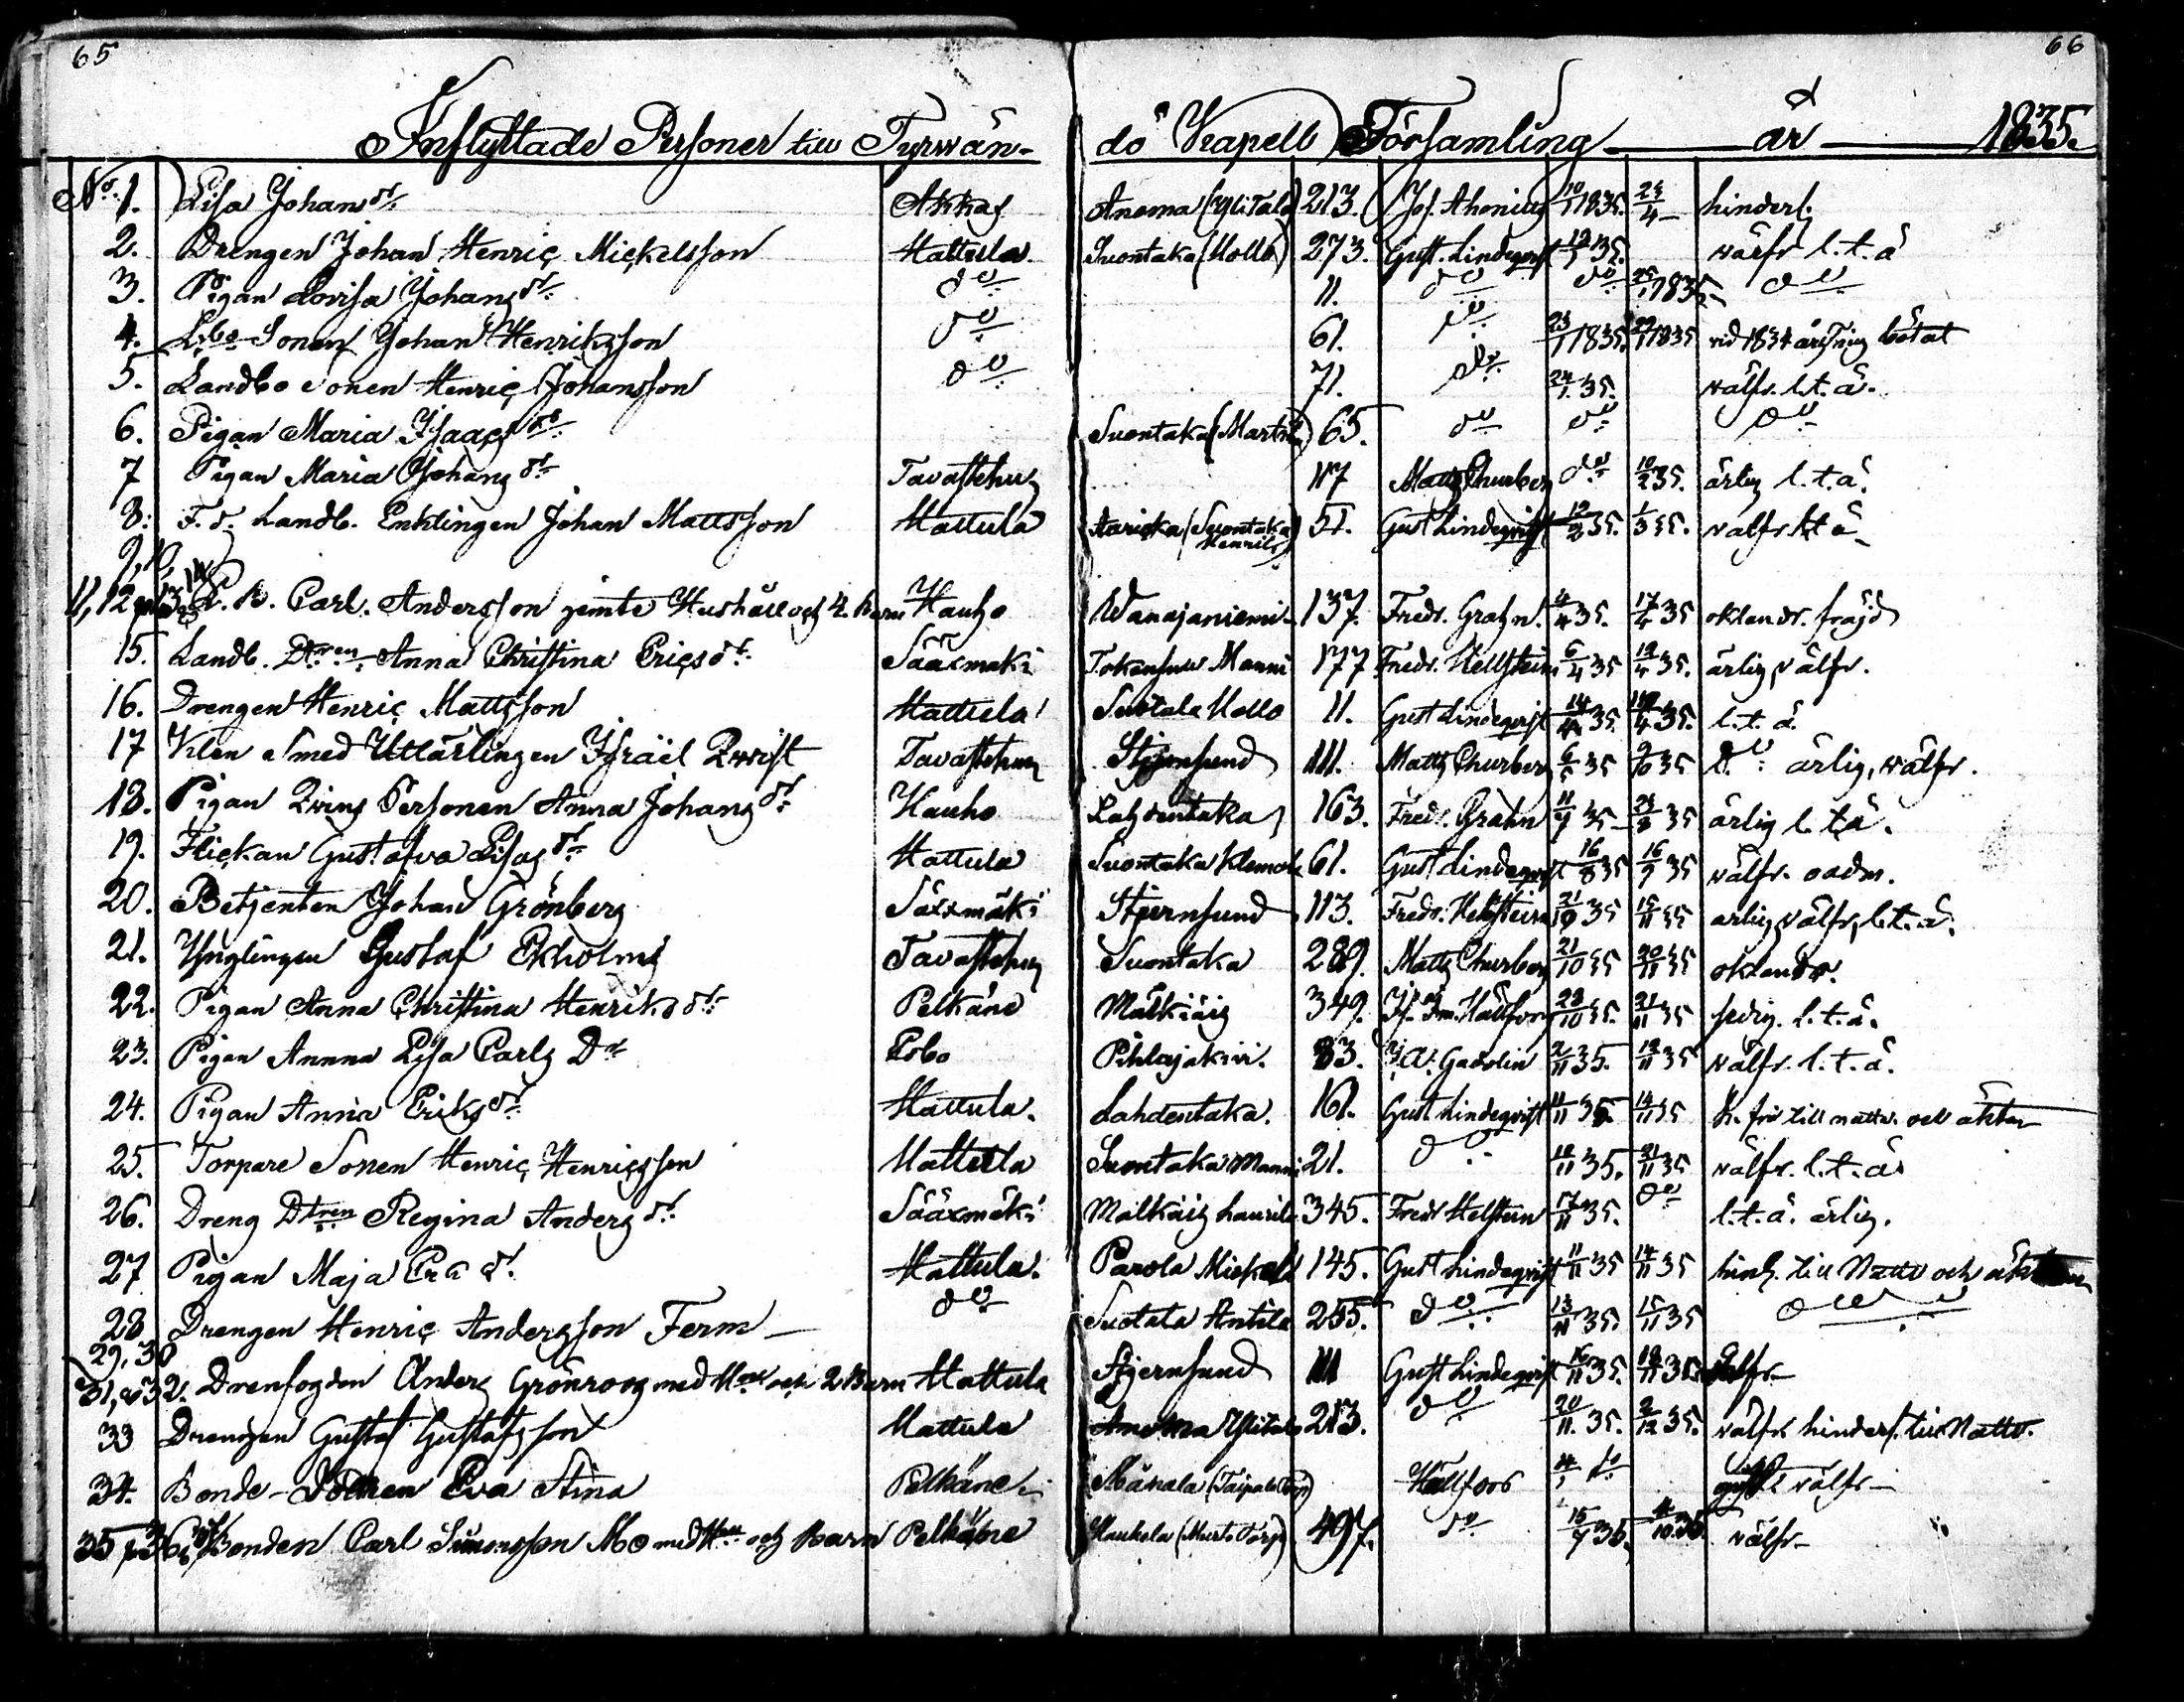 65
66
Inflyttade Personer till Tyrwän-
dö Kapell Församling år 1835.
No. 1. Lisa Johans dr. Akkas Anoma (Ylitalo) 213. Joh. Ahenius 10/1 1835. 23/4 hinderl.
2. Drengen Johan Henriç Miçkelsson Hattula Suontaka (Mollo) 273. Gust. Lindeqvist 12/1 35. wälfr. l. t. ä
3. Pigan Lovisa Johans dr. do 11. do do 25/1 1835 do
4. Ldbo Sonen Johan Henriksson do 61. do 23/1 1835. 29/1 1835 vid 1834 års Ting bötat
5. Landbo Sonen Henriç Johansson do 71. do 24/1 35. wälfr. l. t. ä.
6. Pigan Maria Isaaçs dr. Suontaka (Marttila) 65. do do do
7 Pigan Maria Johans dr. Tavastehus 117 Matts Churberg do 10/2 35. ärlig l. t. ä.
8. F. d. Landb. Enklingen Johan Mattsson Hattula (Suontaka Henrils) 51. Gust Lindeqvist 12/2 35. 1/3 35. wälfr. l t ä
9, 10,
11, 12, 13, 14 L. B. Carl. Andersson jemte Hushåll och 4. Barn Hauho Wanajaniemi 137. Fredr. Grahn. 4/4 35. 17/4 35 oklandr. fräjd
15. Landb. Dtren Anna Christina Eriçs dr. Sääxmäki Tokansuu Manni 177 Fredr. Hellstein 6/4 35 12/4 35. ärlig, wälfr.
16. Drengen Henriç Mattsson Hattula Suotala Mollo 11. Gust Lindeqvist 14/4 35. 19/4 35. l. t. ä.
17 Klen Smed Utlärlingen Israël Qwist Tavastehus Stjernsund 111. Matts Churberg 6/5 35 9/10 35 do ärlig, wälfr.
18. Pigan Qvins Personen Anna Johans dr. Hauho Lahdentaka 163. Fredr. Grahn 11/7 35 23/8 35 ärlig l. t. ä.
19. Fliçkan Gustafva Lisas dr. Hattula Suontaka Klemola 61. Gust Lindeqvist 16/8 35 16/9 35 wälfr. oadm.
20. Betjenten Johan Grönberg Sääxmäki Stjernsund 113. Fredr. Hellstein 21/9 35 15/11 35 ärlig wälfr, l. t. ä.
21. Ynglingen Gustaf Ekholm Tavastehus Suontaka 289. Matts Churberg 21/10 35 20/11 35 oklandr.
22. Pigan Anna Christina Henriks dr. Pelkäne Mälkiäis 349. Hällfors 28/10 35. 21/11 35 sedig. l. t. ä.
23. Pigan Annna Lisa Carls Dr Esbo Pihlajakivi. 83. A. Gadolin 2/11 35. 12/11 35 wälfr. l. t. ä.
24. Pigan Anna Eriks dr. Hattula. Lahdentaka. 161. Gust Lindeqvist 11/11 35. 14/11 35 fri till nattv. och äkten
25. Torpare Sonen Henriç Henriçsson Hattula Suontaka Manni 21. do 12/11 35. 21/11 35 wälfr. l. t. ä.
26. Dreng Dtren Regina Anders dr. Sääxmäki Mälkäis Laurila 345. Fredr Hellstein 17/11 35. do l. t. ä. ärlig.
27 Pigan Maja dr. Hattula. Parola Miçkola 145. Gust Lindeqvist 11/11 35 14/11 35 hind. till Nattv och
28 Drengen Henriç Andersson Ferm do Suotala Antila 255. do 13/11 35. 15/11 35 do
29, 30
31, 32. Drenfogden Anders Grönroos med Hu och 2 Barn Hattula Stjernsund 111 Gust Lindeqvist 16/11 35. 18/11 35 wälfr
33 Drengen Gustaf Gustafsson Hattula Anoma Ylitalo 213. do 20/11. 35. 2/12 35. wälfr hinderl. till Nattv.
34. Bonde-Dottren Eva Stina Pelkäne (Taipale Torp) Hällfors wälfr
35 36 Bonden Carl Simonsson Mo med Hu och Barn Pelkäne Haukela (Murto Torp) 497. do 15/9 36. 4/10 36. wälfr